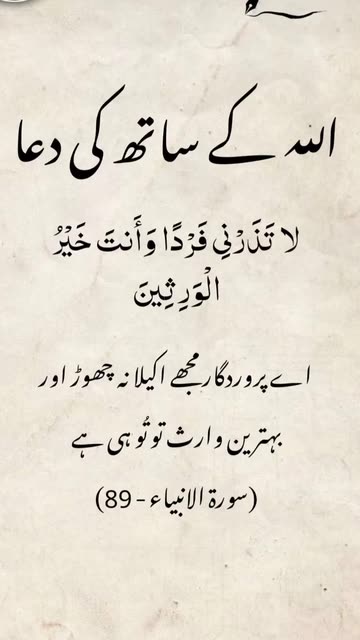 اللہ کے ساتھ کی دعا
لا تَذَرْنِي فَرْدًا وَأَنتَ خَيْرُ
الْوَرِثِينَ
اے پروردگار مجھے اکیلا نہ چھوڑ اور
بہترین وارث تو تُو ہی ہے
(سورۃ الانبیاء - 89)